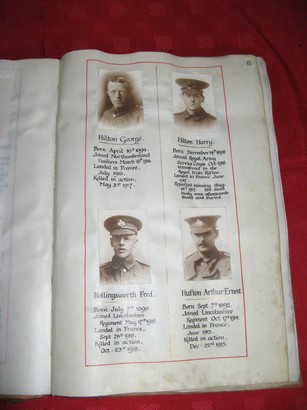 6
Hilton George.
Born April 16th 1894.
Joined Northumberland
Fusiliers March 16th 1916
Landed in France,
July 1916.
Killed in action,
May 3rd 1917.
Hilton Harry.
Born December 14th 1898
Joined Royal Army
Service Corps Oct. 1916
transferred to the
Royal Irish Rifles
Landed in France June
1917.
Reported missing Aug.
16th 1917. His dead
body was afterwards
found and buried.
Hollingsworth Fred.
Born July 7th 1898.
Joined Lincolnshire
Regiment May 17th 1918
Landed in France,
Sept 28th 1918.
Killed in action,
Oct. 23rd 1918.
Hufton Arthur Ernest.
Born Sept. 7th 1892.
Joined Lincolnshire
Regiment Oct. 17th 1914
Landed in France,
June 1915.
Killed in action,
Dec. 22nd 1915.